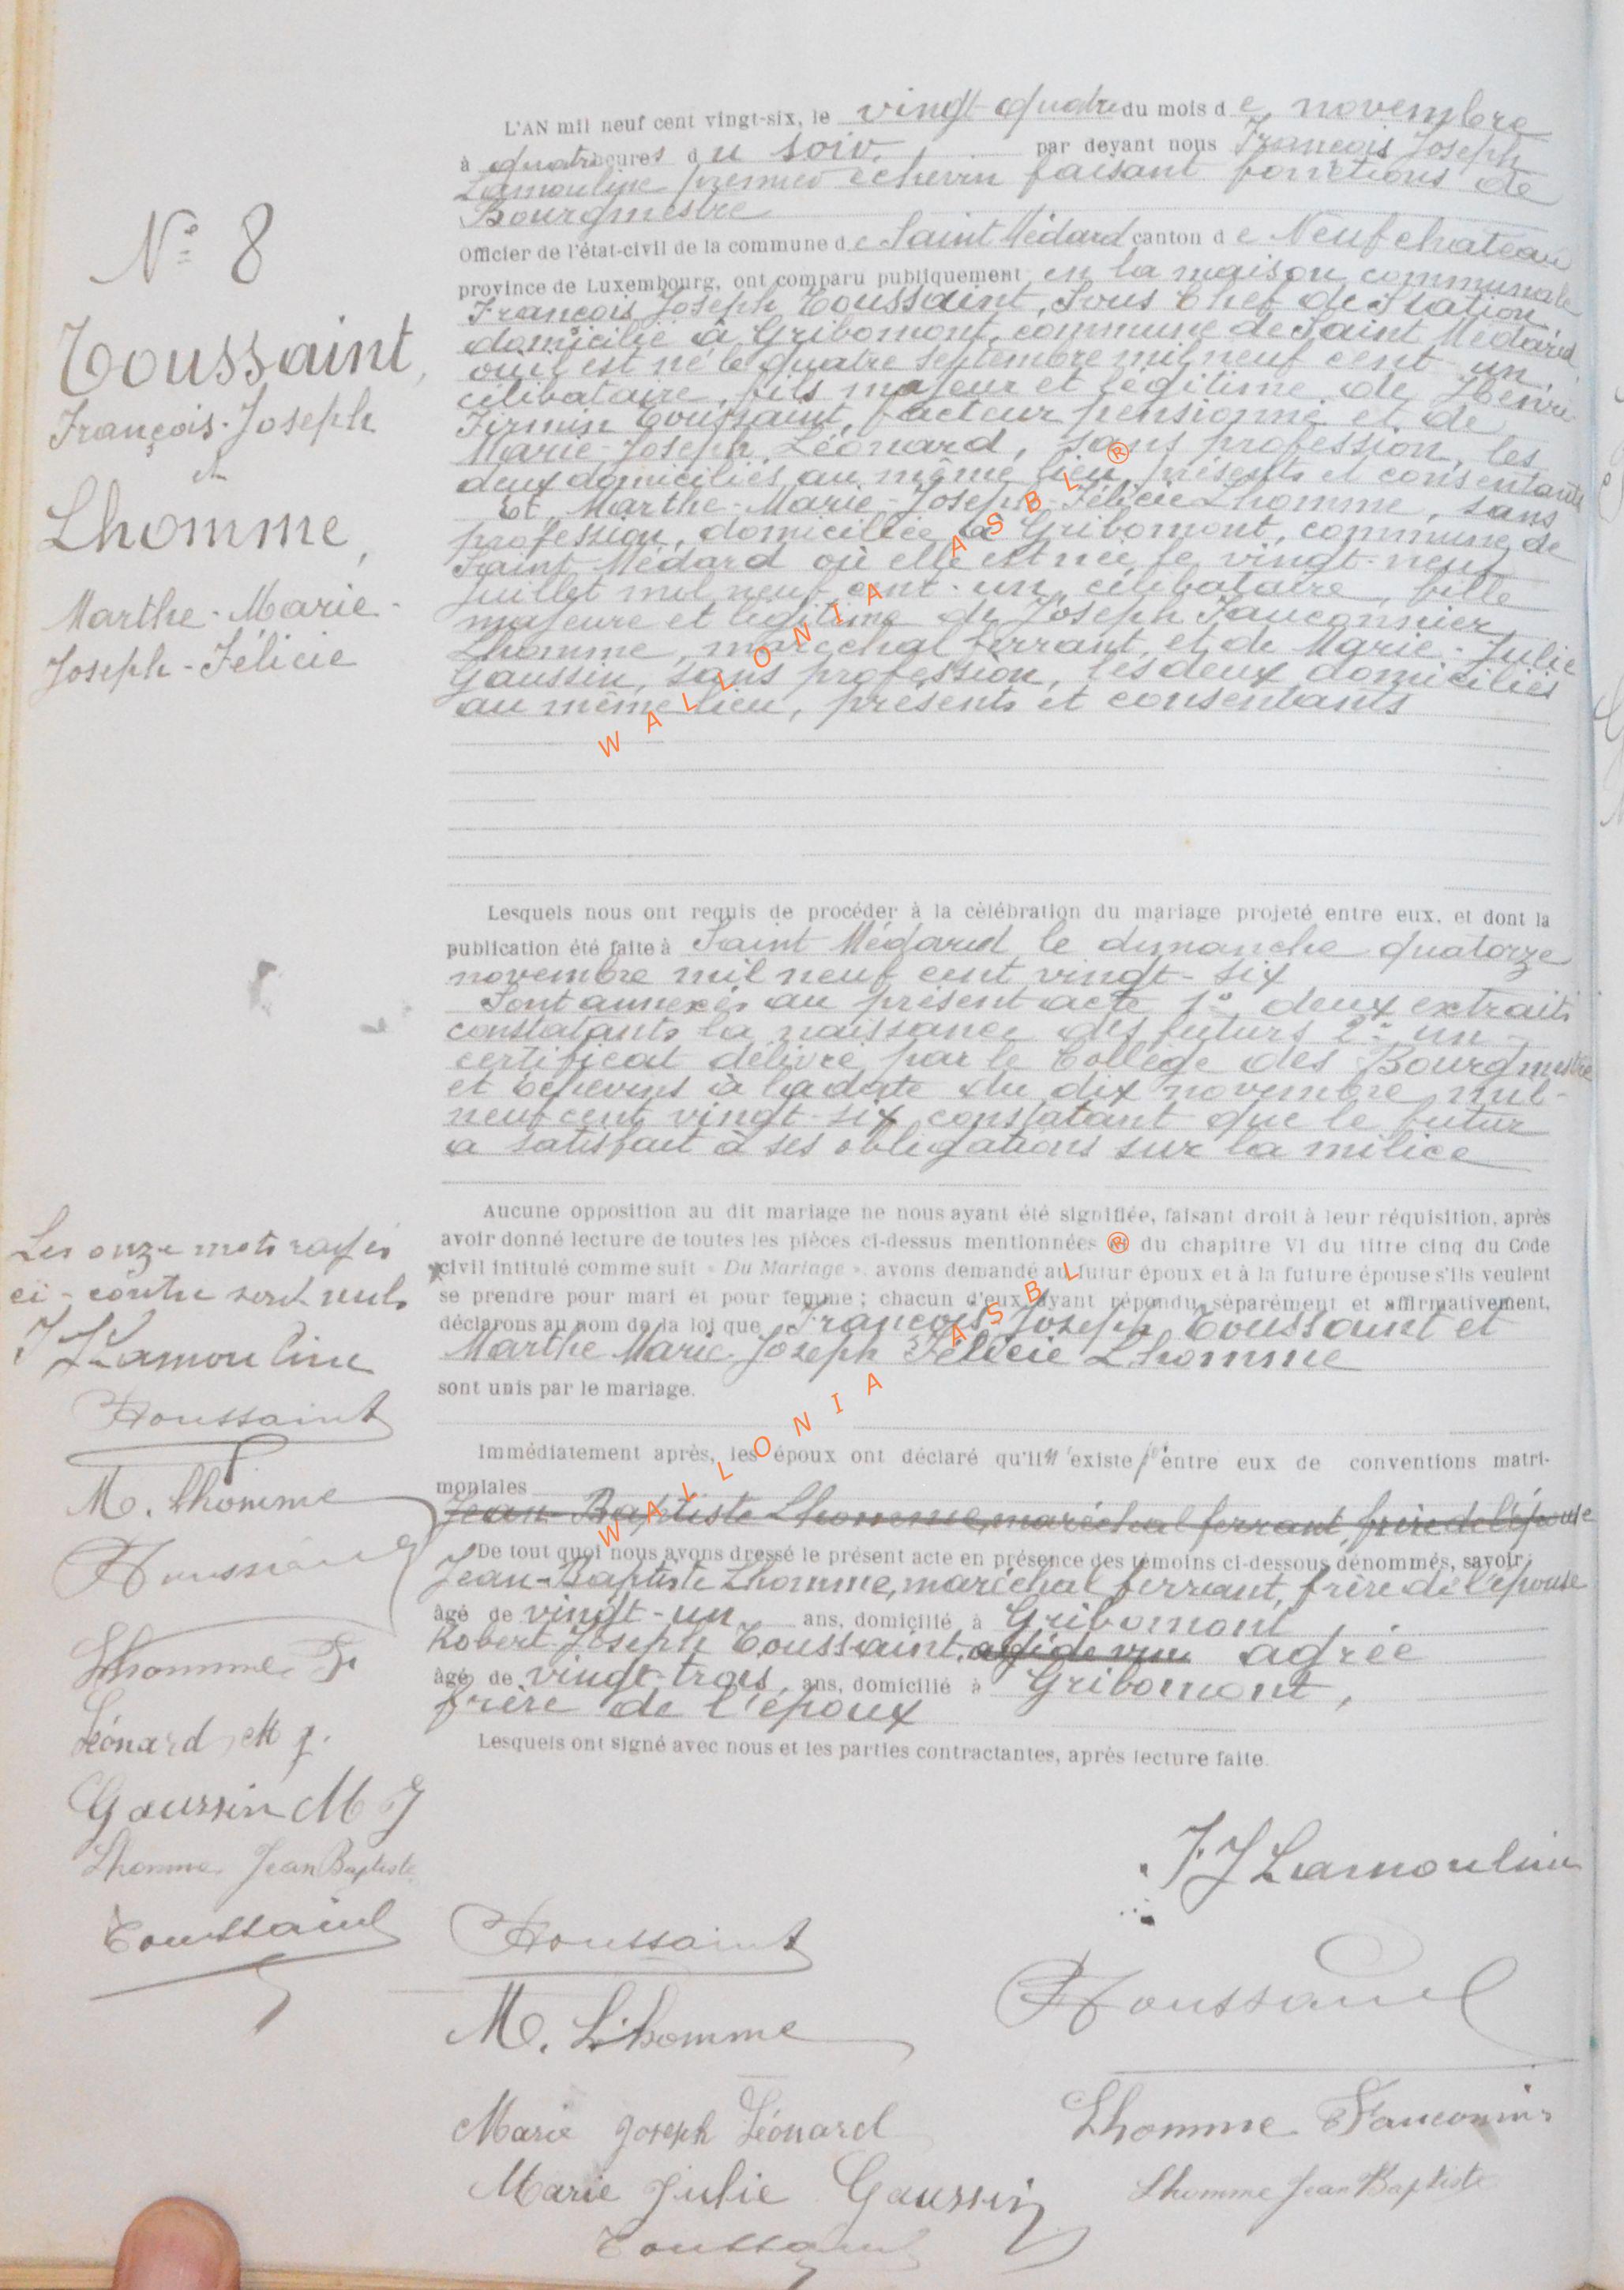 N° 8
Toussaint,
François-Joseph
et
Lhomme,
Marthe-Marie-
Joseph-Félicie
L'AN mil neuf cent vingt-six, le vingt-quatre du mois de novembre
à quatre heures du soir, par devant nous François Joseph
Lamouline premier échevin faisant fonctions de
Bourgmestre
Officier de l'état-civil de la commune de Saint Médard canton de Neufchateau
province de Luxembourg, ont comparu publiquement en la maison communale
François Joseph Toussaint, Sous Chef de Station,
domicilié à Gribomont, commune de Saint Médard
où il est né le quatre septembre mil neuf cent-un,
célibataire, fils majeur et légitime de Henri
Firmin Toussaint, facteur pensionné et de
Marie-Joseph Léonard, sans profession, les
deux domiciliés au même lieu, présents et consentants
Et Marthe-Marie-Joseph-Félicie Lhomme, sans
profession, domiciliée à Gribomont, commune de
Saint Médard où elle est née le vingt-neuf
Juillet mil neuf cent-un, célibataire, fille
majeure et légitime de Joseph Fauconnier
Lhomme, maréchal ferrant, et de Marie-Julie
Gaussin, sans profession, les deux domiciliés
au même lieu, présents et consentants
Lesquels nous ont requis de procéder à la célébration du mariage projeté entre eux, et dont la
publication été faite à Saint Médard le dimanche quatorze
novembre mil neuf cent vingt-six
Sont annexés au présent acte 1° deux extraits
constatants la naissance des futurs 2° un
certificat délivré par le Collège des Bourgmestre
et Echevins à la date du dix novembre mil-
neuf cent vingt-six constatant que le futur
a satisfait à ses obligations sur la milice
Aucune opposition au dit mariage ne nous ayant été signifiée, faisant droit à leur réquisition, après
avoir donné lecture de toutes les pièces ci-dessus mentionnées du chapitre VI du titre cinq du Code
civil intitulé comme suit « Du Mariage », avons demandé au futur époux et à la future épouse s'ils veulent
se prendre pour mari et pour femme ; chacun d'eux ayant répondu séparément et affirmativement,
déclarons au nom de la loi que François-Joseph Toussaint et
Marthe Marie-Joseph Félicie Lhomme
sont unis par le mariage.
Immédiatement après, les époux ont déclaré qu'il n'existe pas entre eux de conventions matri-
moniales
Jean-Baptiste Lhomme, maréchal ferrant, frère de l'épouse
De tout quoi nous avons dressé le présent acte en présence des témoins ci-dessous dénommés, savoir:
Jean-Baptiste Lhomme, maréchal ferrant, frère de l'épouse
âgé de vingt-un ans, domicilié à Gribomont
Robert-Joseph Toussaint, agrée
âgé de vingt-trois, ans, domicilié à Gribomont,
frère de l'époux
Lesquels ont signé avec nous et les parties contractantes, après lecture faite.
Les onze mots rayés
ci-contre sont nuls
F J Lamouline
Toussaint
M. Lhomme
Toussaint
Lhomme F
Léonard M J.
Gaussin M J
Lhomme Jean Baptiste
Toussaint
F. J Lamouline
Toussaint
Toussaint
M. Lhomme
Marie Joseph Léonard
Lhomme Fauconnier
Marie Julie Gaussin
Lhomme Jean Baptiste
Toussaint
WALLONIA ASBL ®
WALLONIA ASBL ®